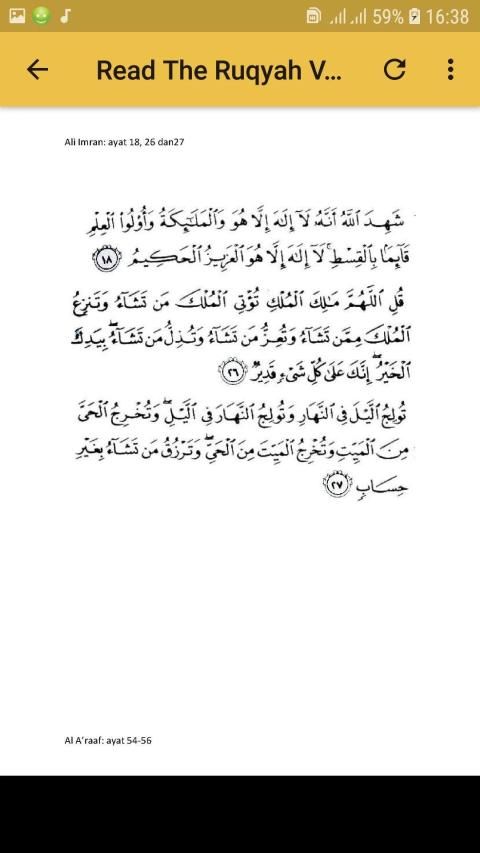 59% 16:38
Read The Ruqyah V...
Ali Imran: ayat 18, 26 dan27
شَهِدَ ٱللَّهُ أَنَّهُۥ لَآ إِلَٰهَ إِلَّا هُوَ وَٱلْمَلَٰٓئِكَةُ وَأُو۟لُوا۟ ٱلْعِلْمِ
قَآئِمًۢا بِٱلْقِسْطِ ۚ لَآ إِلَٰهَ إِلَّا هُوَ ٱلْعَزِيزُ ٱلْحَكِيمُ ١٨
قُلِ ٱللَّهُمَّ مَٰلِكَ ٱلْمُلْكِ تُؤْتِى ٱلْمُلْكَ مَن تَشَآءُ وَتَنزِعُ
ٱلْمُلْكَ مِمَّن تَشَآءُ وَتُعِزُّ مَن تَشَآءُ وَتُذِلُّ مَن تَشَآءُ ۖ بِيَدِكَ
ٱلْخَيْرُ ۖ إِنَّكَ عَلَىٰ كُلِّ شَىْءٍ قَدِيرٌ ٢٦
تُولِجُ ٱلَّيْلَ فِى ٱلنَّهَارِ وَتُولِجُ ٱلنَّهَارَ فِى ٱلَّيْلِ ۖ وَتُخْرِجُ ٱلْحَىَّ
مِنَ ٱلْمَيِّتِ وَتُخْرِجُ ٱلْمَيِّتَ مِنَ ٱلْحَىِّ ۖ وَتَرْزُقُ مَن تَشَآءُ بِغَيْرِ
حِسَابٍ ٢٧
Al A'raaf: ayat 54-56